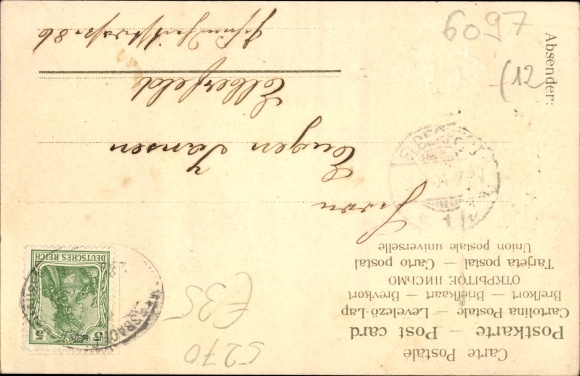 Carte Postale
Postkarte — Post card
Cartolina Postale — Levelező-Lap
Brefkort — Briefkaart — Brevkort
ОТКРЫТОЕ ПИСЬМО
Tarjeta postal — Carto postal
Union postale universelle
5
DEUTSCHES REICH
Herrn
Eugen Jansen
Elberfeld
Absender:
6097
(12
E35
5270